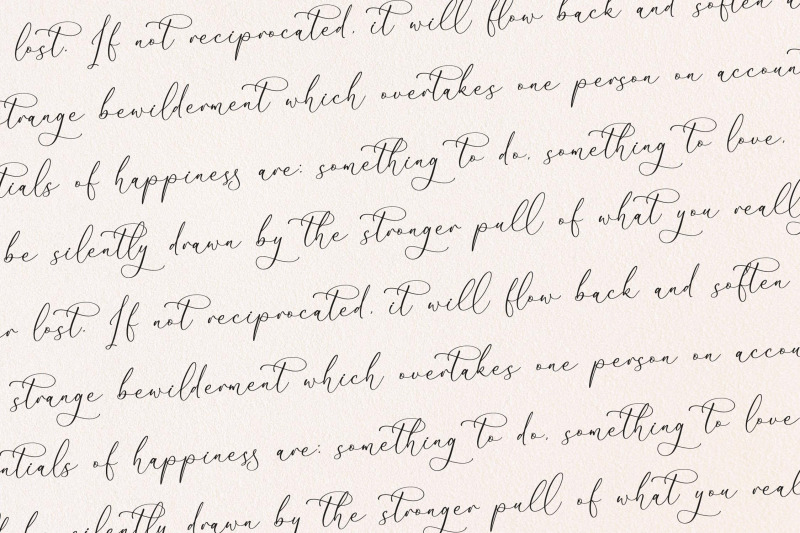 lost. If not reciprocated, it will flow back and soften a
trange bewilderment which overtakes one person on accoun
tials of happiness are: something to do, something to love,
be silently drawn by the stronger pull of what you really
r lost. If not reciprocated, it will flow back and soften
strange bewilderment which overtakes one person on accou
ntials of happiness are: something to do, something to love
be silently drawn by the stronger pull of what you real